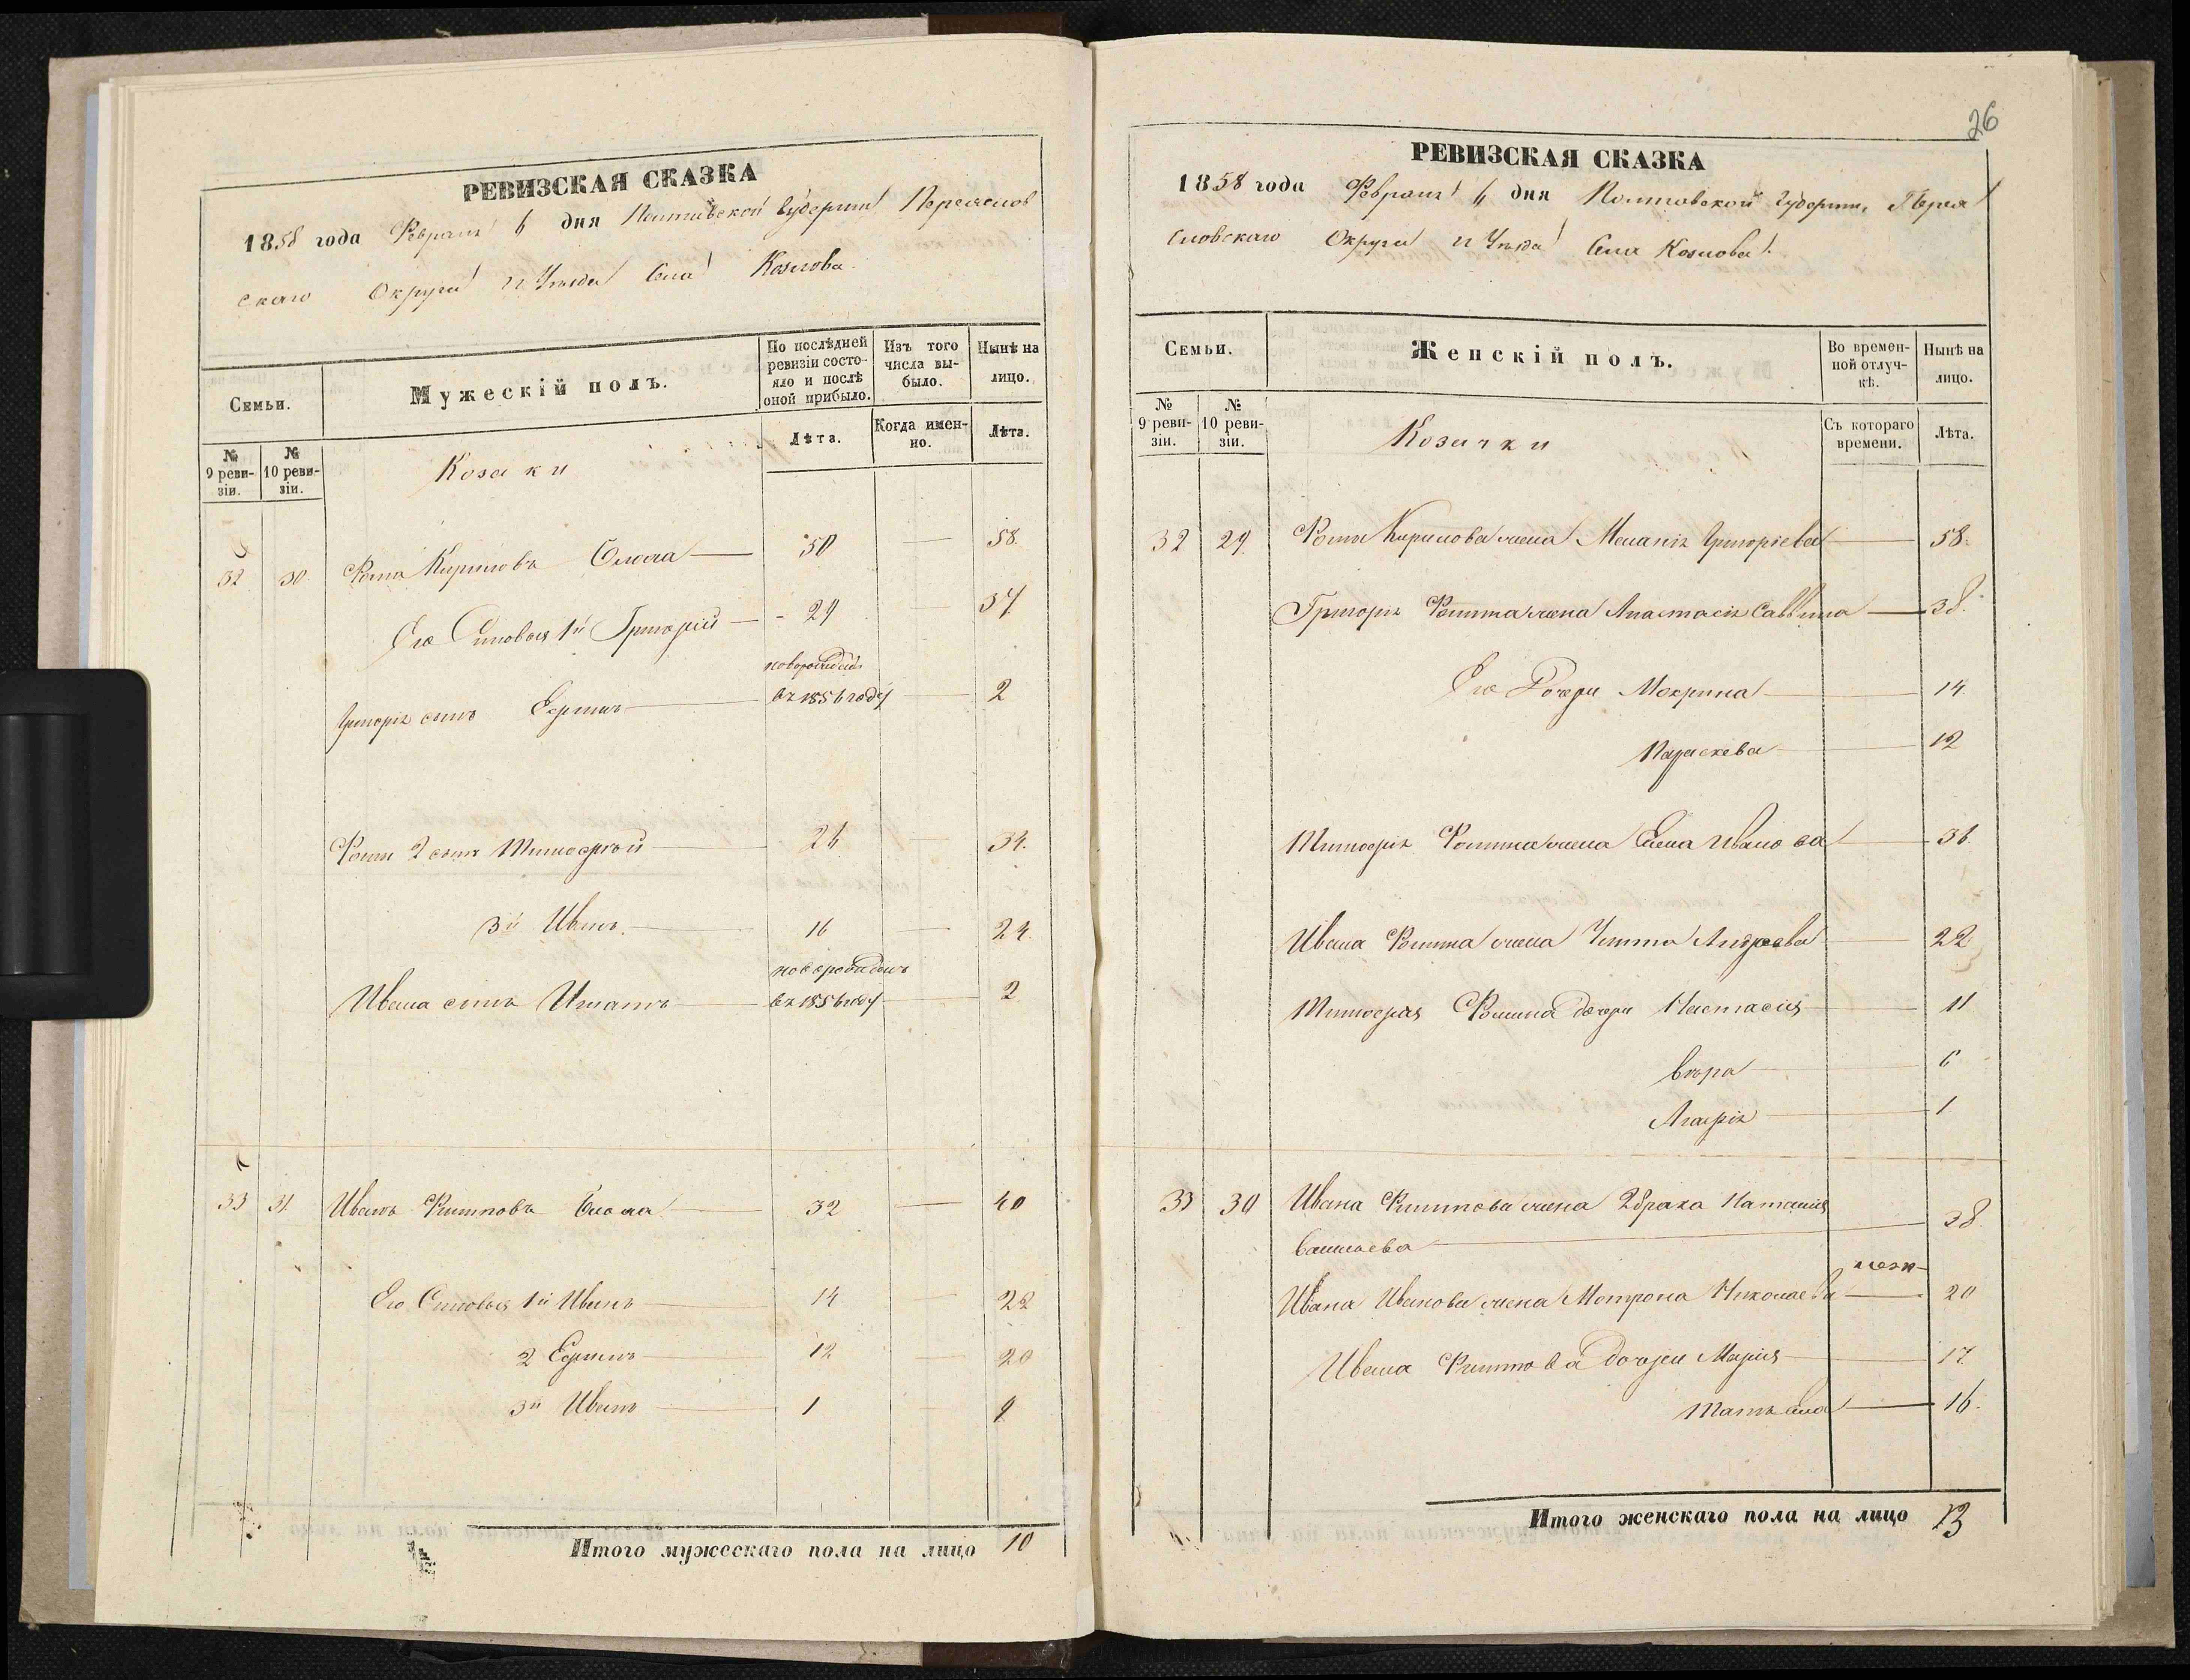 РЕВИЗСКАЯ СКАЗКА
1858 года Февраля 6 дня Полтавской Губерніи Переяслов
скаго Округа и Уѣзда Села Козлова.
Семьи.
Мужескій полъ.
По послѣдней ревизіи состояло и послѣ оной прибыло.
Изъ того числа выбыло.
Нынѣ на лицо.
№ 9 ревизіи.
№ 10 ревизіи.
Козаки
Лѣта.
Когда именно.
Лѣта.
32 30 Фома Кириловъ 50 — 58.
Его Синовья 1й Григорій — 29 37
новорожденъ
Григорія сынъ Ефимъ въ 1856 году — 2
Фомы 2 сынъ Тимофей 26 — 34.
3й Иванъ 16 — 24.
новорожденъ
Ивана сынъ Игнатъ въ 1856 году — 2
33 31 Иванъ Филиповъ 32 — 40
Его Синовья 1й Иванъ 14 — 22
2 Ефимъ 12 — 20
3й Иванъ 1 — 9
Итого мужескаго пола на лицо 10
26
РЕВИЗСКАЯ СКАЗКА
1858 года Февраля 6 дня Полтавской Губерніи, Перея
словскаго Округа и Уѣзда Села Козлова.
Семьи.
Женскій полъ.
Во временной отлучкѣ.
Нынѣ на лицо.
№ 9 ревизіи.
№ 10 ревизіи.
Козачки
Съ котораго времени.
Лѣта.
32 29. Фомы Кирилова жена Меланія Григорьева — 58.
Григорія Фомина жена Анастасія Саввина — 38.
Его Дочери Мокрина — 14.
Параскева — 12
Тимофея Фомина жена Елена Иванова — 36.
Ивана Фомина жена Улита Андреева — 22
Тимофея Фомина дочери Настасія — 11
Вѣра — 6
Агафія — 1
33 30 Ивана Филипова жена 2 брака Наталія
Василева — 38.
Ивана Иванова жена Мотрона Николаева — 20
Ивана Филипова дочери Марія — 17.
Татьяна — 16.
Итого женскаго пола на лицо 13